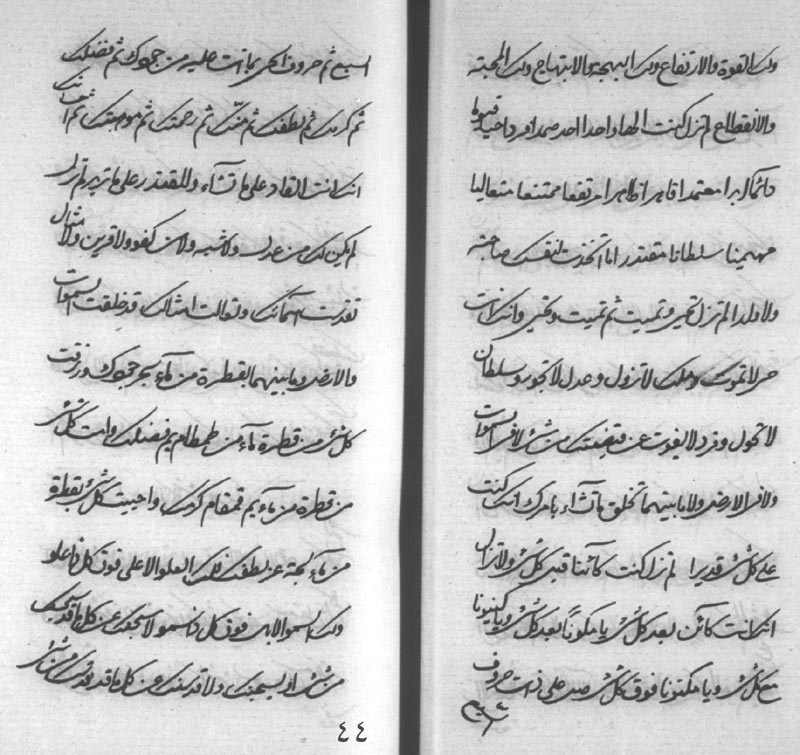 ولك القوة والارتفاع ولك البهجة والابتهاج ولك المحبة
والانقطاع لم تزل كنت الها واحدا احدا صمدا فردا حيا قيوما
دائما ابدا معتمدا قاهرا ظاهرا مرتفعا ممتنعا متعاليا
مهيمنا سلطانا مقتدرا ما اتخذت لنفسك صاحبة
ولا ولدا لم تزل تحيي وتميت ثم تميت وتحيي وانك انت
حي لا تموت وملك لا تزول وعدل لا تجور وسلطان
لا تحول وفرد لا يفوت عن قبضتك من شيء لا في السموات
ولا في الارض ولا ما بينهما تخلق ما تشاء بامرك انك كنت
على كل شيء قديرا لم تزل كنت كائنا قبل كل شيء ولا تزال
انك انت كائن بعد كل شيء يا مكونا بعد كل شيء ويا كينونا
مع كل شيء ويا مكنونا فوق كل شيء صل على ذات حروف
السبع ثم حروف الحي بما انت عليه من جودك ثم فضلك
ثم كرمك ثم لطفك ثم منك ثم رحمتك ثم موهبتك ثم
انك انت القادر على ما تشاء والمقتدر على ما تريد لم تزل
لم يكن لك من عدل ولا شبه ولا كفو ولا قرين ولا مثال
تقدست اسمائك وتعالت امثالك قد خلقت السموات
والارض وما بينهما بقطرة من ماء بحر جودك ورزقت
كل شيء من قطرة ماء من طمطام يم فضلك وامت كل شيء
من قطرة من ماء يم قمقام كرمك واحييت كل شيء بقطرة
من ماء لجة عز لطفك فلك العلو الاعلى فوق كل ذا علو
ولك السمو الابهى فوق كل ذا سمو لاسبحنك عن كل ما قد سبحك
من شيء او يسبحنك ولاقدسنك عن كل ما قد قدسك من شيء
٤٤